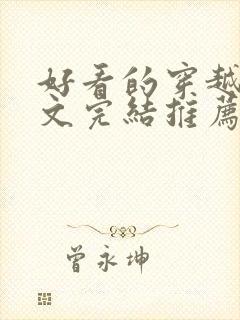 好看的穿越
文完結推薦
曾永坤